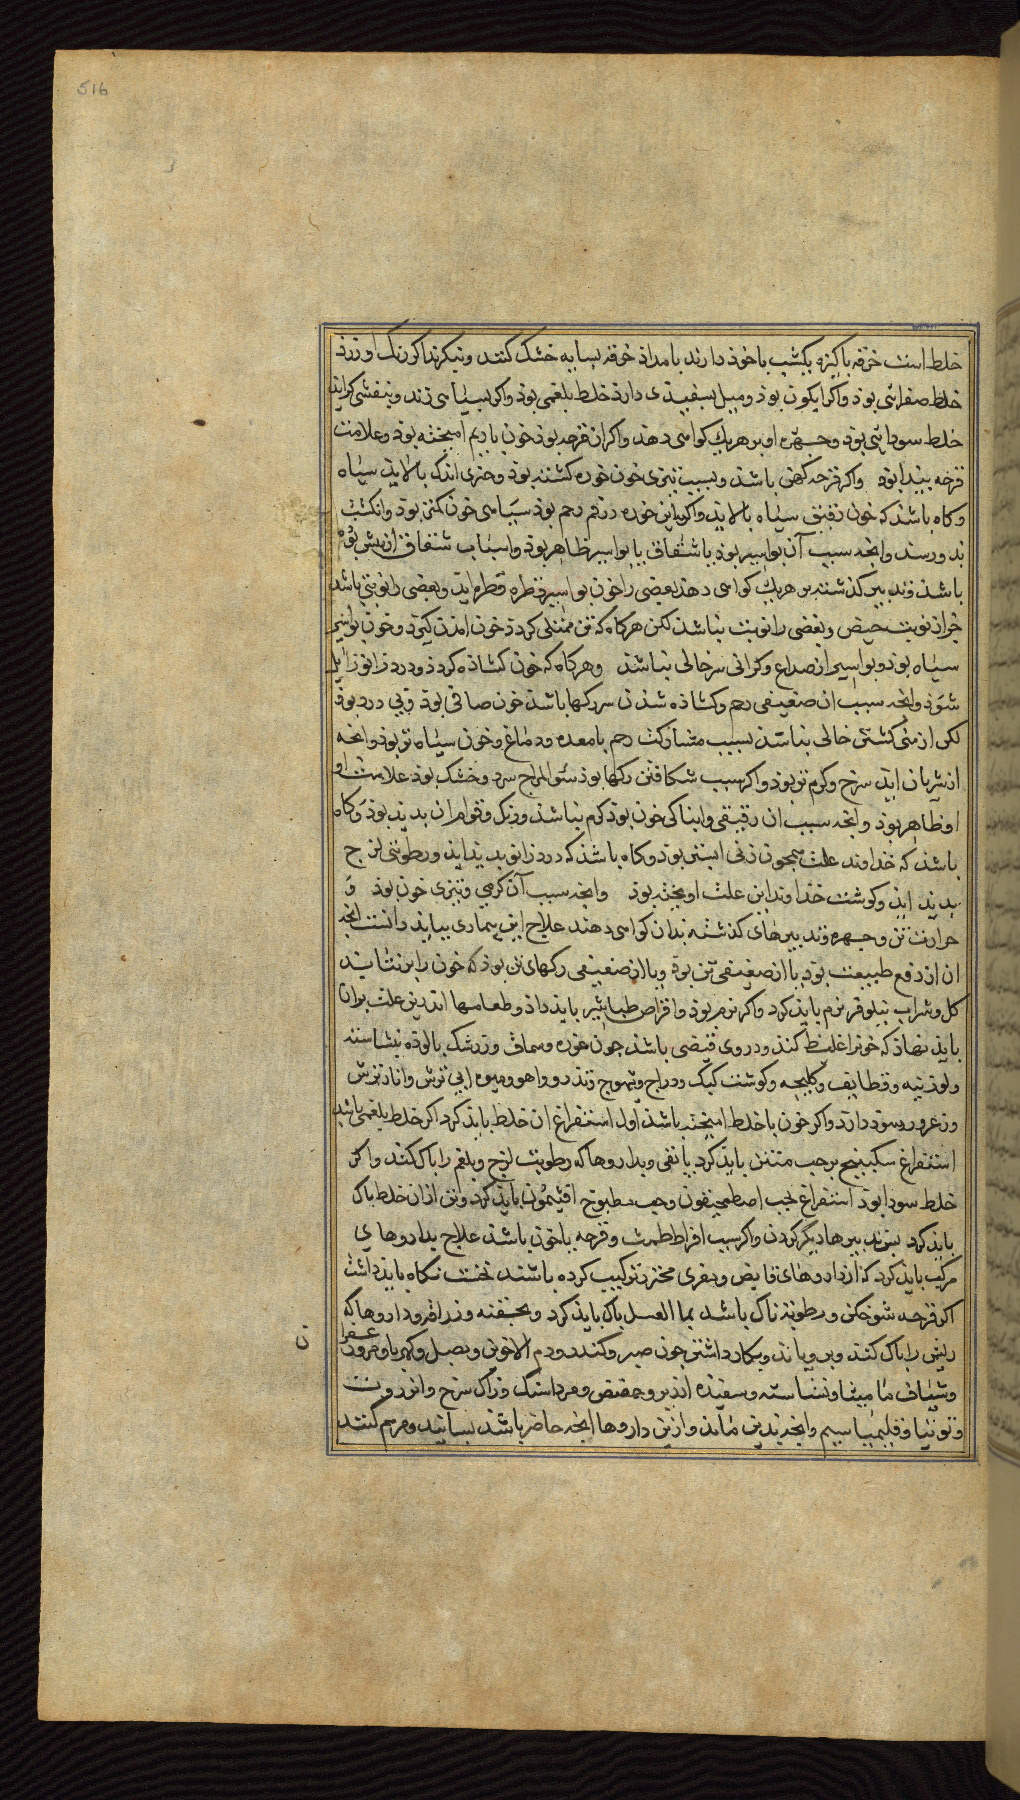 516
خلط است خرقه پاکیزه یکشب با خوذ دارند بامداد خرقه بسایه خشک کنند و بنگرند اگر رنک او زرد
خلط صفرائی بوذ و اکر ایکون بوذ و میل بسفیدی دارد خلط بلغمی بوذ و اکر بسیاهی زند و بنفشی کراید
خلط سودائی بوذ و جهره او بر هریک کواهی دهد و اکر از قرحه بوذ خون با ریم امیخته بوذ و علامت
قرحه بیدا بوذ واکر قرحه کهن باشذ و بسبب تیزی خون خوره کشته بوذ و جیزی اندک بالاید سیاه
و کاه باشذ که خون رقیق سیاه بالاید و اکر این خوره در فم رحم بوذ سیاهی خون کمتر بوذ و انکشت
بدو رسد وانجه سبب آن بواسیر بوذ یا شقاق یا بواسیر ظاهر بوذ و اسباب شقاق از بیش بوده
باشد و تدبیر کذشته بر هریک کواهی دهد بعضی را خون بواسیر قطره قطره اید و بعضی را نوبتی باشد
جز از نوبت حیض و بعضی را نوبت نباشد لکن هرکاه که تن ممتلی کردد خون امدن کیرد و خون بواسیر
سیاه بوذ و بواسیر از صداع و کرانی سر خالی نباشد وهرکاه که خون کشاذه کردد و درد زانو زایل
شود وانجه سبب ان ضعیفی رحم و کشاذه شدن سر رکها باشد خون صافی بوذ و بی درد بوذ
لکن از منی کشتن خالی نباشد بسبب مشارکت رحم با معده و دماغ و خون سیاه تر بوذ وانجه
از شریان اید سرخ و کرم تر بوذ و اکر سبب شکافتن رکها بوذ سوء المزاج سرد و خشک بوذ علامت او
او ظاهر بوذ وانجه سبب ان رقیقی و ابناکی خون بوذ کرم نباشد و رنک و قوام ان بدید بوذ و کاه
باشذ که خداوند علت همجون زنی ابستن بوذ و کاه باشذ که درد زانو بدید اید و رطوبتی لزج
بدید اید و کوشت خداوند این علت اویخته بوذ وانجه سبب آن کرمی و تیزی خون بوذ و
حرارت تن و جهره و تدبیرهای کذشته بدان کواهی دهند علاج این بیماری بباید دانست انجه
ان از دفع طبیعت بوذ یا از ضعیفی تن بوذ ویا از ضعیفی رکهای تن بوذ که خون را برنتابند
کل و شراب نیلوفر نرم باید کرد و اکر نرم بوذ و اقراص طباشیر باید داد و طعامها اندرین علت بران
باید نهاذ که خونرا غلیظ کند و در وی قبضی باشذ جون غوره و سماق و زرشک بالوده نشاسته
و لوزینه و قطایف و کلیجه و کوشت کبک و دراج و تیهوج و تذرو و اهو و میوه ابی ترش و انار ترش
و زعرور سود دارد و اکر خون با خلط امیخته باشذ اول استفراغ ان خلط باید کرد اکر خلط بلغمی باشد
استفراغ سکبینج بر حب منتن باید کرد یا بقی و بداروها که رطوبت لزج و بلغم را باک کند و اکر
خلط سودا بوذ استفراغ بحب اصطمحیقون و حب مطبوخ افتیمون باید کرد و تن از ان خلط باک
باید کرد بتدبیرها دیکر کردن و اکر سبب افراط طمث و قرحه با خون باشد علاج بداروهای
مرکب باید کرد که از داروهای قابض و مغری مخدر ترکیب کرده باشند نخست نکاه باید داشت
اکر قرحه شوخکن و رطوبت ناک باشد بما العسل باک باید کرد و بحقنه و زراقه و داروها که
ریش را باک کند و برویاند و بکار داشتن جون صبر و کندر و دم الاخوین و بصل و کهربا و
ن
و شیاف مامیثا و نشاسته و سفیده ارزیز و جمصص و مرداسنک و زاک سرخ و انزروت
و توتیا و قلیمیا سیم وانجه بدین ماند و ازین داروها انجه حاضر باشد بسایند و مرهم کنند